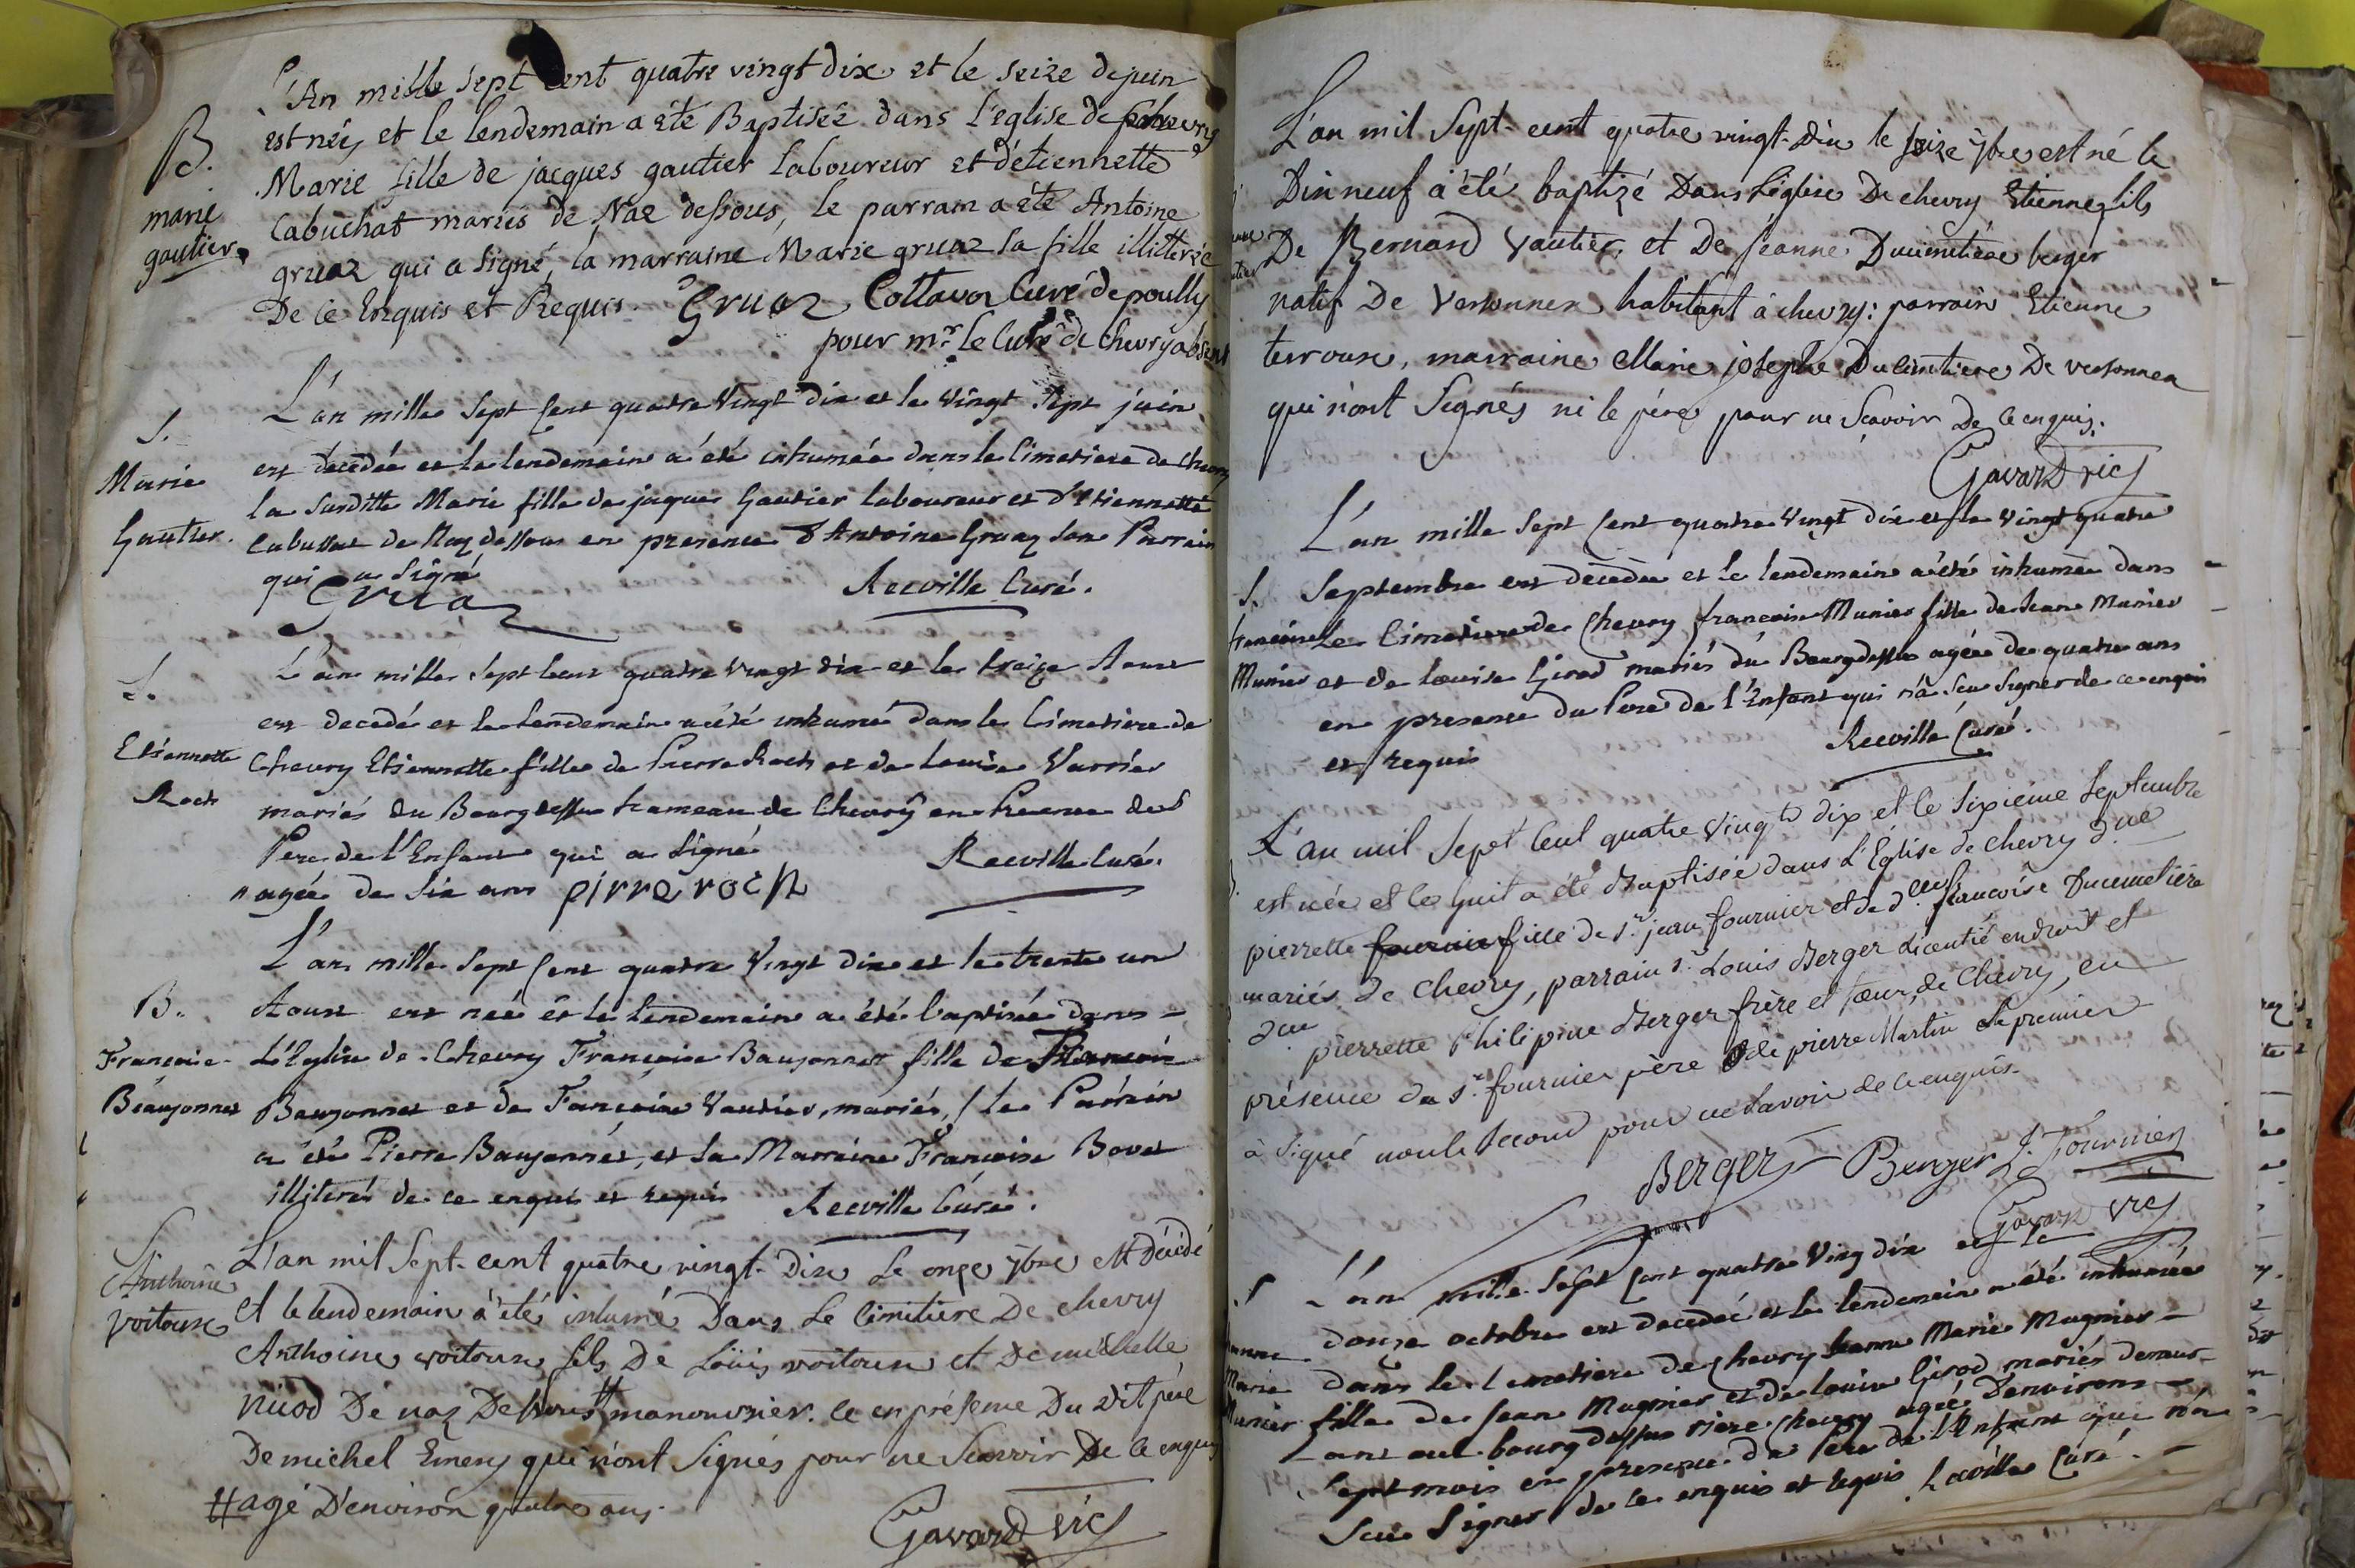 L'An mille sept cent quatre vingt dix et le seize de juin
est née, et le lendemain a été Baptisée dans l'eglise de chevry
B.
Marie fille de jacques gautier laboureur et d'etiennette
marie
Cabuchat mariés de Naz dessous, le parrain a été Antoine
gautier
gruaz qui a signé, la marraine Marie gruaz sa fille illitérée
De ce Enquis et Requis. Gruaz Cottavoz Curé de poully
pour mr. le Curé de chevry absent
L'an mille sept cent quatre vingt dix et le vingt sept juin
S.
est décédée et le lendemain a été inhumée dans le Cimetiere de Chevry
Marie
la susditte Marie fille de jaques Gautier laboureur et d'Etiennette
Gautier.
Cabussat de Naz dessous en presence d'Antoine Gruaz son Parrain
qui a signé
Gruaz Recville Curé.
L'an mille sept cent quatre vingt dix et le treize Aoust
S.
est decedé et le lendemain a été inhumé dans le Cimetiere de
Etiennette
Chevry Etiennette fille de Pierre Roch et de Louise Varrier
Roch
mariés du Bourg dessus hameau de Chevry en Presence du
Pere de l'Enfant qui a signé Recville Curé.
agée de six ans pirre roch
L'an mille sept cent quatre vingt dix et le trente un
B.
Aoust est née et le lendemain a été baptisée dans
Françoise
L'Eglise de Chevry Françoise Baujonnet fille de François
Beaujonnet
Baujonnet et de Fançoise Vautier, mariés, le Parrain
a été Pierre Baujonnet, et la Marraine Françoise Bovet
illiterés de ce enquis et requis Recville Curé.
S.
L'an mil Sept-cent quatre vingt-Dix Le onze 7bre est décédé
Anthoine
voitoux
et le lendemain à été inhumé Dans Le Cimitiere De chevry
Anthoine voitoux fils De Loüis voitoux et De michelle
nicod De naz Dessous # manouvrier. ce en présence Du dit père
De michel Emery qui n'ont Signés pour ne Scavoir De ce enquis
# agé D'environ quatre ans.
Gavard vic
L'an mil Sept-cent quatre vingt-Dix le seize 7bre est né le
Dixneuf à été baptizé Dans L'église De chevry Etienne fils
De Bernard Vautier, et De Jeanne Ducimetière berger
natif De Versonnex habitant à chevry: parrain Etienne
terroux, marraine Marie josephe Ducimtiere De versonnex
qui n'ont Signés ni le père pour ne Scavoir De ce enquis.
Gavard vic
L'an mille sept cent quatre vingt dix et le vingt quatre
S.
Septembre est décédée et le lendemain a été inhumée dans
francoise
le Cimetiere de Chevry francoise Munier fille de Jean Munier
Munier
et de Louise Girod mariés du Bourg dessus agée de quatre ans
en presence du Pere de l'Enfant qui n'a sçu signer de ce enquis
et requis Recville Curé.
L'an mil Sept Cent quatre vingt dix et le sixième Septembre
est née et le huit a été Baptisée dans L'Église de chevry dlle
pierrette fournier fille de sr. jean fournier et de dlle françoise Ducimetière
mariés de Chevry, parrain sr. Louis Berger Licentié en droit et
dlle pierrette Philipine Berger frère et soeur, de Chevry, en
présence du sr. fournier père et de pierre Martin Le premier
à signé non le second pour ne savoir de ce enquis.
Berger Berger J. Fournier
Gavard vic
S
L'an mille sept cent quatre vingt dix et le
douze octobre est decedée et le lendemain a été inhumée
Marie
Munier
dans le cimetiere de Chevry Jeanne Marie Mugnier
fille de Jean Mugnier et de Louise Girod mariés demeur-
ant au bourg dessus riere Chevry agée d'environs
sept mois en presence du Pere de l'Enfant qui n'a
scu signer de ce enquis et requis. Recville Curé.